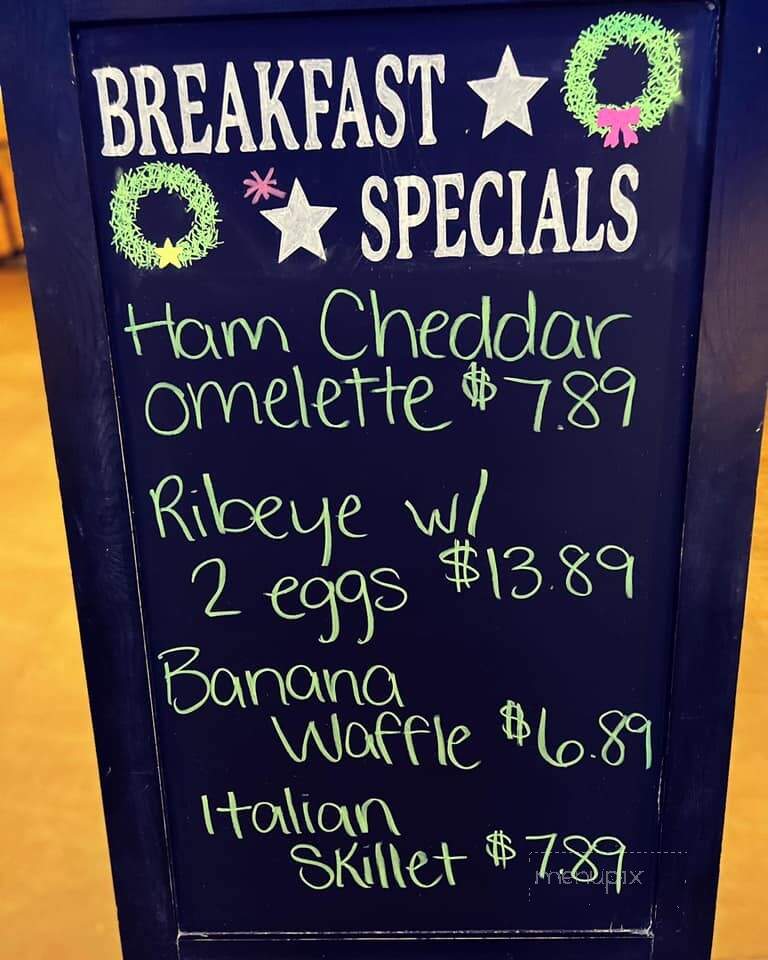 BREAKFAST
SPECIALS
Ham Cheddar
omelette $7.89
Ribeye w/
2 eggs $13.89
Banana
Waffle $6.89
Italian
Skillet $7.89
menupix